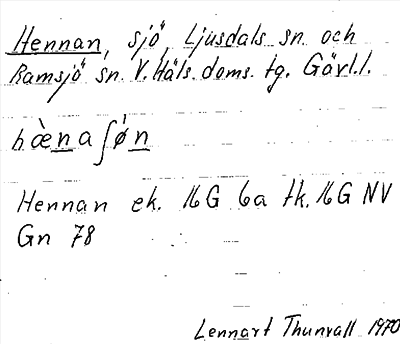 Hennan, sjö, Ljusdals sn. och
Ramsjö sn. V. Häls. doms. tg. Gävl.l.
hæ̀naʃǿn
Hennan ek. 16G 6a tk. 16G NV
Gn 78
Lennart Thunvall 1970